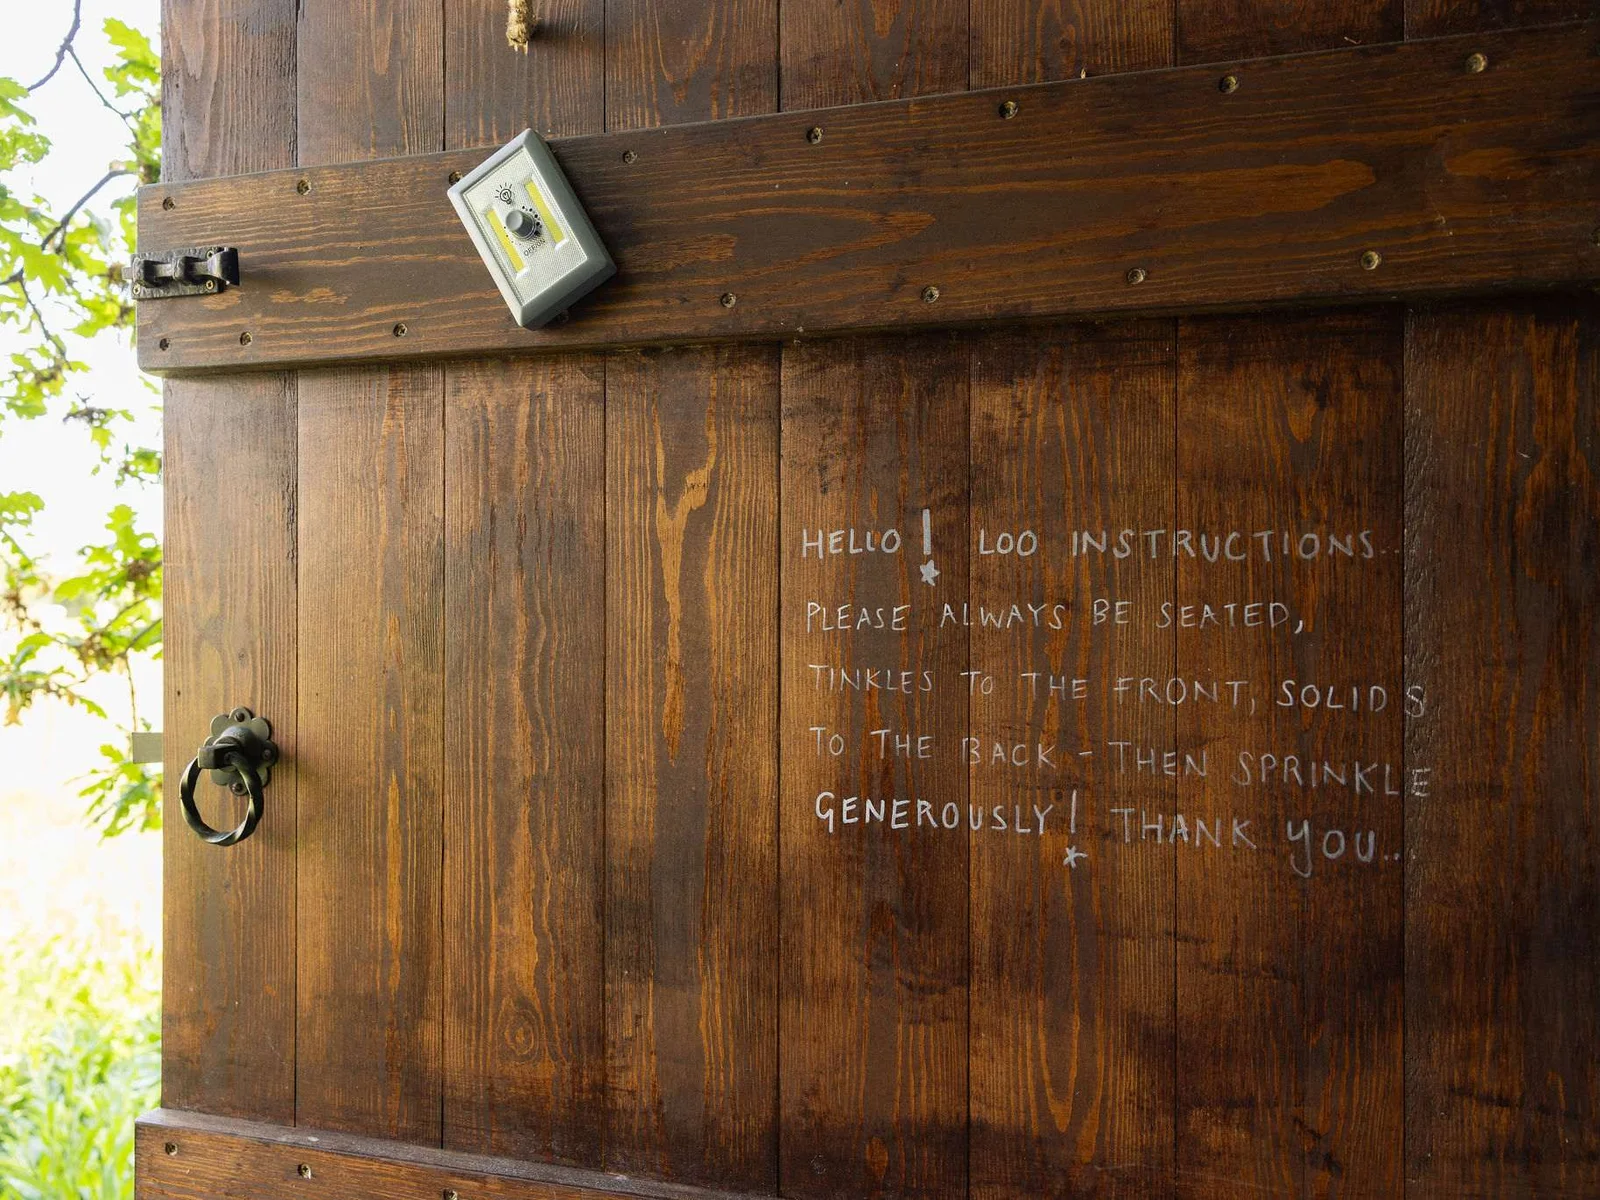 OFF/ON
HELLO! LOO INSTRUCTIONS..
PLEASE ALWAYS BE SEATED,
TINKLES TO THE FRONT, SOLIDS
TO THE BACK - THEN SPRINKLE
GENEROUSLY! THANK YOU..